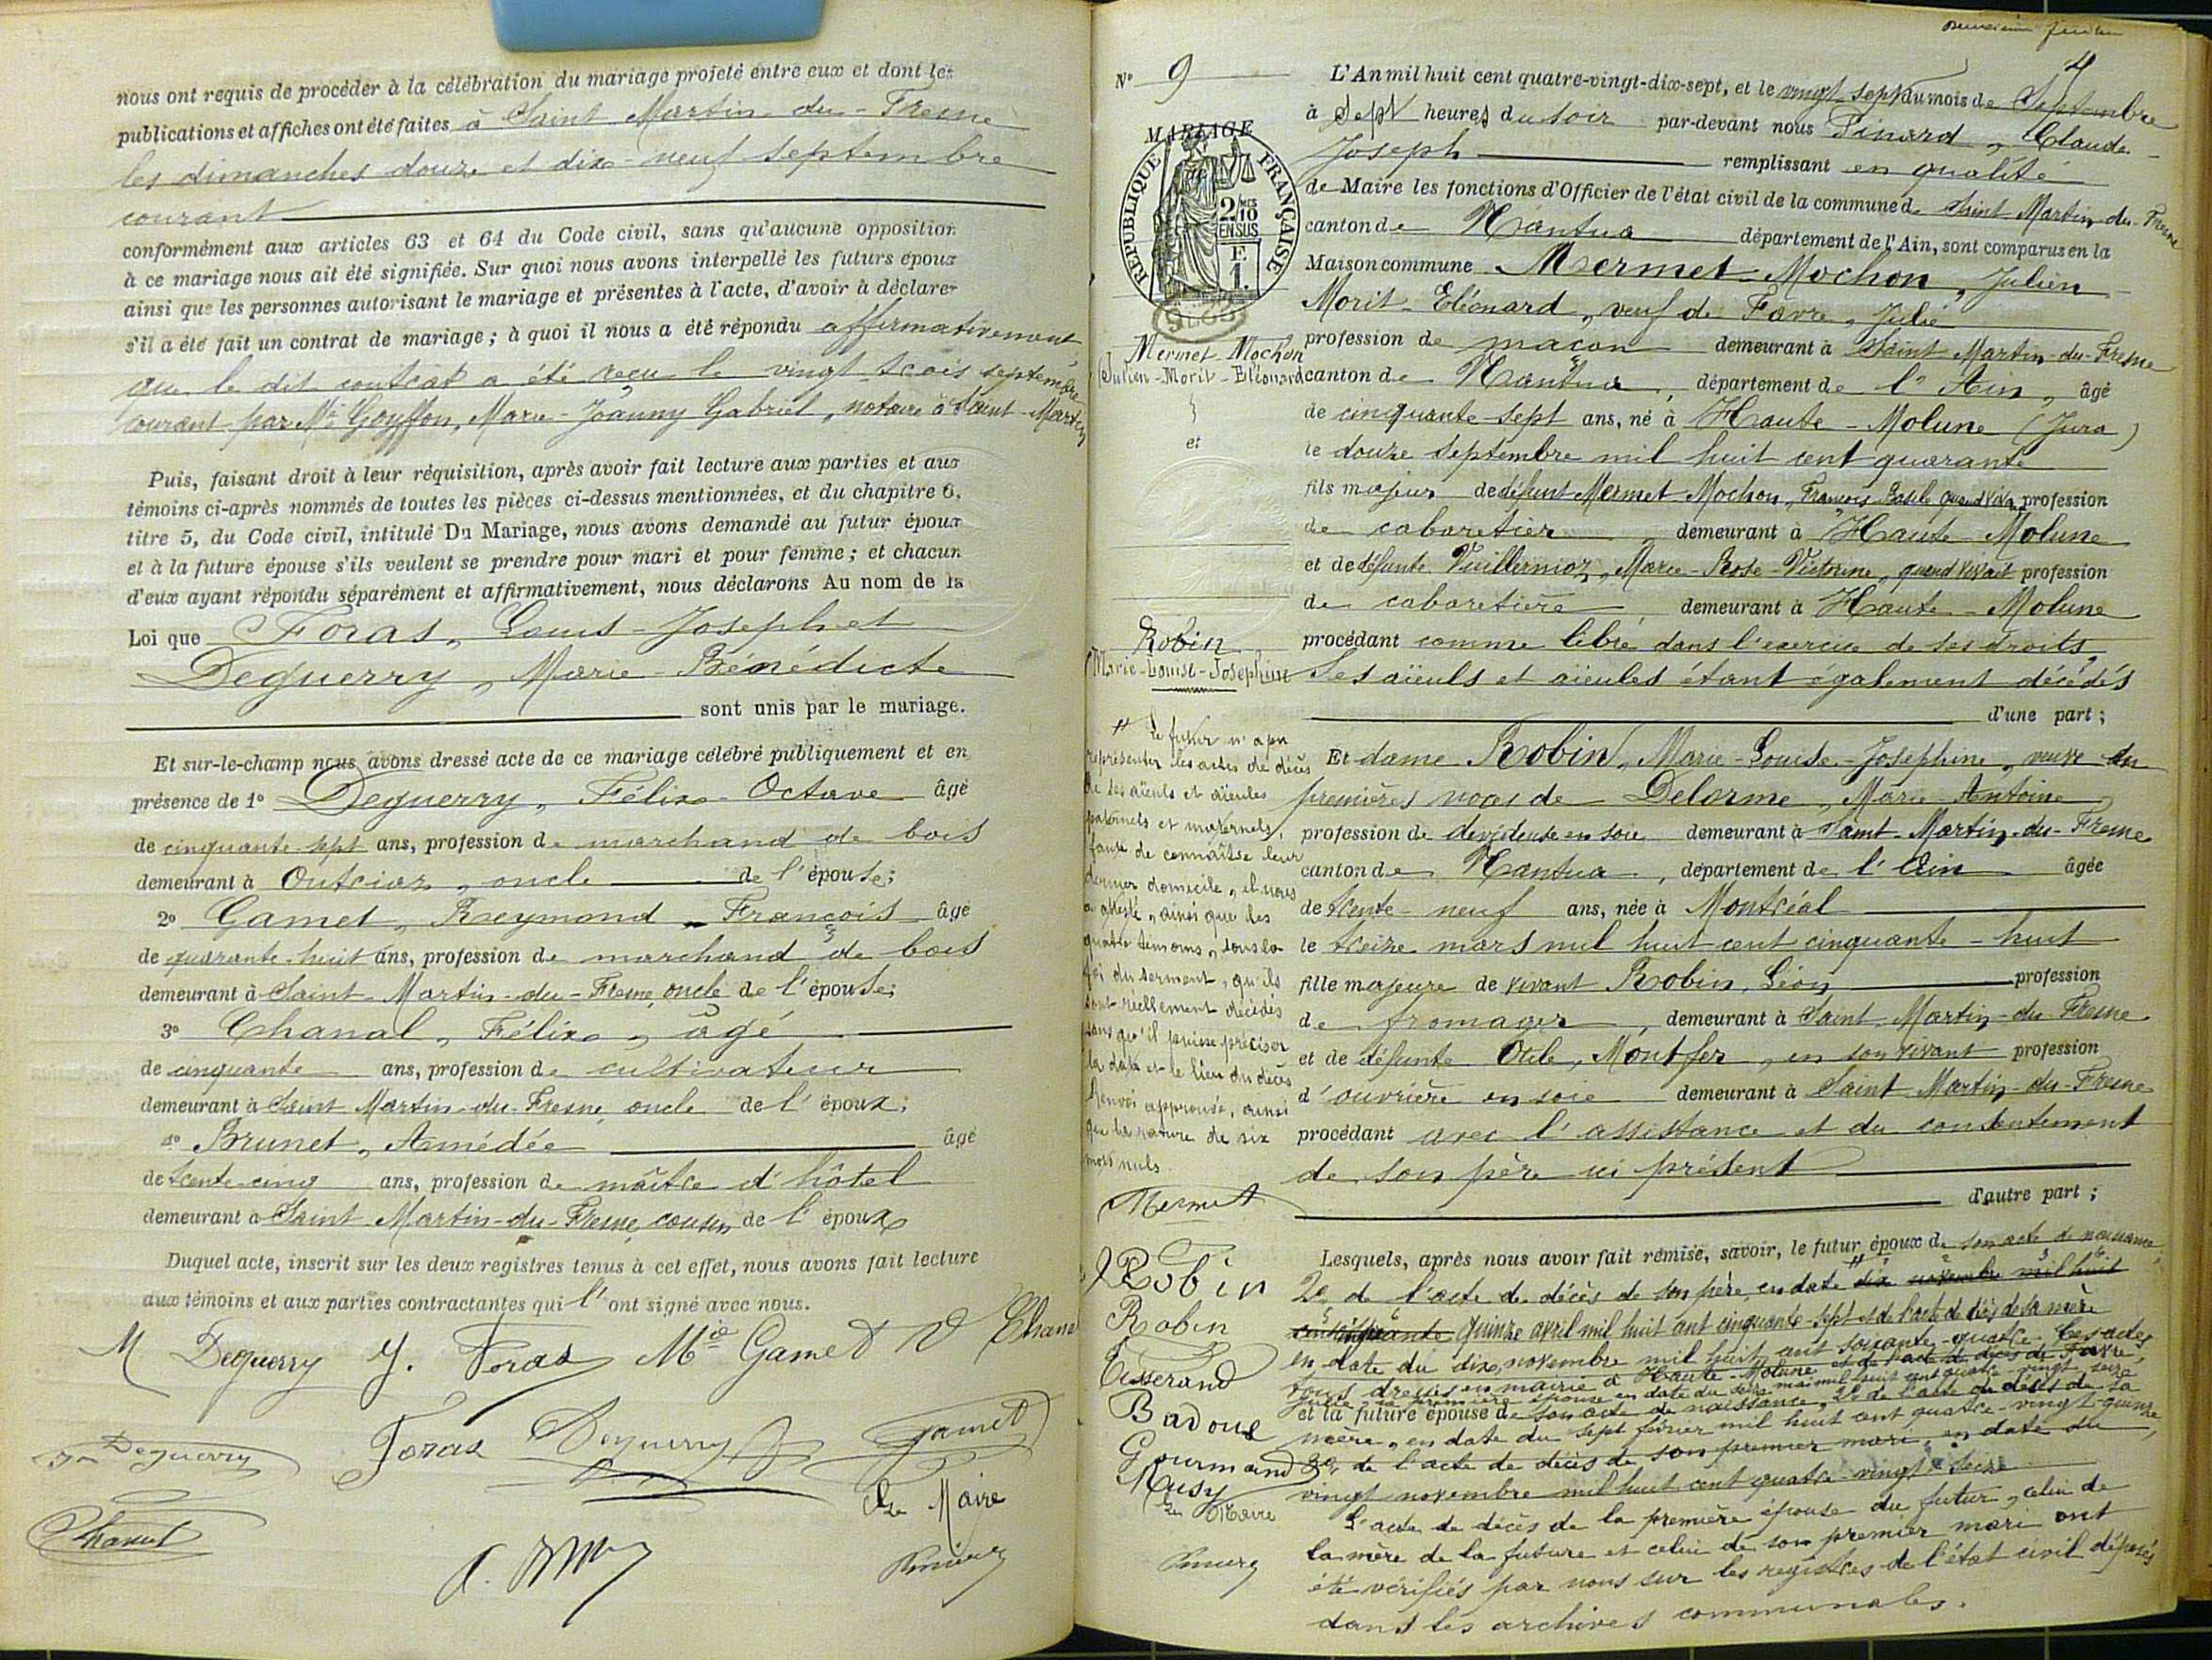 nous ont requis de procéder à la célébration du mariage projeté entre eux et dont les
publications et affiches ont été faites à Saint Martin-du-Fresne
les dimanches douze et dix-neuf septembre
courant
conformément aux articles 63 et 64 du Code civil, sans qu'aucune opposition
à ce mariage nous ait été signifiée. Sur quoi nous avons interpellé les futurs époux
ainsi que les personnes autorisant le mariage et présentes à l'acte, d'avoir à déclarer
s'il a été fait un contrat de mariage ; à quoi il nous a été répondu affirmativement
que le dit contrat a été reçu le vingt-trois septembre
courant par Me Goyffon, Marie-Joanny Gabriel, notaire à Saint-Martin
Puis, faisant droit à leur réquisition, après avoir fait lecture aux parties et aux
témoins ci-après nommés de toutes les pièces ci-dessus mentionnées, et du chapitre 6,
titre 5, du Code civil, intitulé Du Mariage, nous avons demandé au futur époux
et à la future épouse s'ils veulent se prendre pour mari et pour femme ; et chacun
d'eux ayant répondu séparément et affirmativement, nous déclarons Au nom de la
Loi que Foras, Louis-Joseph et
Deguerry, Marie-Bénédicte
sont unis par le mariage.
Et sur-le-champ nous avons dressé acte de ce mariage célébré publiquement et en
présence de 1° Deguerry, Félix-Octave âgé
de cinquante-sept ans, profession de marchand de bois
demeurant à Outriaz, oncle de l'épouse;
2° Gamet, Reymond-François âgé
de quarante-huit ans, profession de marchand de bois
demeurant à Saint-Martin-du-Fresne, oncle de l'épouse;
3° Chanal, Félix, âgé
de cinquante ans, profession de cultivateur
demeurant à Saint Martin-du-Fresne, oncle de l'époux;
4° Brunet, Amédée âgé
de trente-cinq ans, profession de maître d'hôtel
demeurant à Saint Martin-du-Fresne, cousin de l'époux
Duquel acte, inscrit sur les deux registres tenus à cet effet, nous avons fait lecture
aux témoins et aux parties contractantes qui l'ont signé avec nous.
M Deguerry J. Foras Mie Gamet
Deguerry Foras Deguerry Gamet
Le Maire
Chanal
N° 9
MARIAGE
RÉPUBLIQUE FRANÇAISE
2/10 EN SUS
F. 1.
Mermet-Mochon
Julien-Morit-Eléonard
et
Robin
Marie-Louise-Josephine
Le futur n'a pu
représenter les actes de décès
de ses aïeuls et aïeules
paternels et maternels,
faute de connaître leur
dernier domicile, il nous
a attesté, ainsi que les
quatre témoins, sous la
foi du serment, qu'ils
sont réellement décédés
sans qu'il puisse préciser
la date et le lieu du décès
Renvoi approuvé, ainsi
que la rature de six
mots nuls.
Mermet
Robin
Robin
Tisserand
Badoux
Gourmand
Musy
Le Maire
L'An mil huit cent quatre-vingt-dix-sept, et le vingt-sept du mois de Septembre
à sept heures du soir par-devant nous Pinard, Claude
Joseph remplissant en qualité
de Maire les fonctions d'Officier de l'état civil de la commune de Saint Martin-du-Fresne
canton de Nantua département de l'Ain, sont comparus en la
Maison commune Mermet-Mochon, Julien
Morit-Eléonard, veuf de Favre, Julie
profession de maçon demeurant à Saint Martin-du-Fresne
canton de Nantua, département de l'Ain, âgé
de cinquante sept ans, né à Haute-Molune (Jura)
le douze septembre mil huit cent quarante
fils majeur de défunt Mermet Mochon, François Basile quand vivait profession
de cabaretier demeurant à Haute-Molune
et de défunte Vuillermoz, Marie-Rose-Victorine, quand vivait profession
de cabaretière demeurant à Haute-Molune
procédant comme libre dans l'exercice de ses droits,
Ses aïeuls et aïeules étant également décédés
d'une part ;
Et dame Robin, Marie-Louise-Josephine, veuve en
premières noces de Delorme, Marie-Antoine,
profession de dévideuse en soie demeurant à Saint-Martin-du-Fresne
canton de Nantua, département de l'Ain âgée
de trente-neuf ans, née à Montréal
le treize mars mil huit cent cinquante-huit
fille majeure de vivant Robin, Léon profession
de fromager, demeurant à Saint-Martin-du-Fresne
et de défunte Otile, Montfer, en son vivant profession
d'ouvrière en soie demeurant à Saint-Martin-du-Fresne
procédant avec l'assistance et du consentement
de son père ici présent
d'autre part ;
Lesquels, après nous avoir fait remise, savoir, le futur époux de son acte de naissance,
2° de l'acte de décès de son père, en date dix novembre mil huit
cent cinquante quinze avril mil huit cent cinquante-sept et de l'acte de décès de sa mère
en date du dix novembre mil huit cent soixante-quatre. Ces actes
tous dressés en mairie à Haute-Molune et de l'acte de décès de Favre,
Julie, sa première épouse en date du seize mai mil huit cent quatre vingt seize
et la future épouse de son acte de naissance, 2° de l'acte de décès de sa
mère, en date du sept février mil huit cent quatre-vingt-quinze,
3° de l'acte de décès de son premier mari, en date du
vingt novembre mil huit cent quatre-vingt-seize
L'acte de décès de la première épouse du futur, celui de
la mère de la future et celui de son premier mari ont
été vérifiés par nous sur les registres de l'état civil déposés
dans les archives communales.